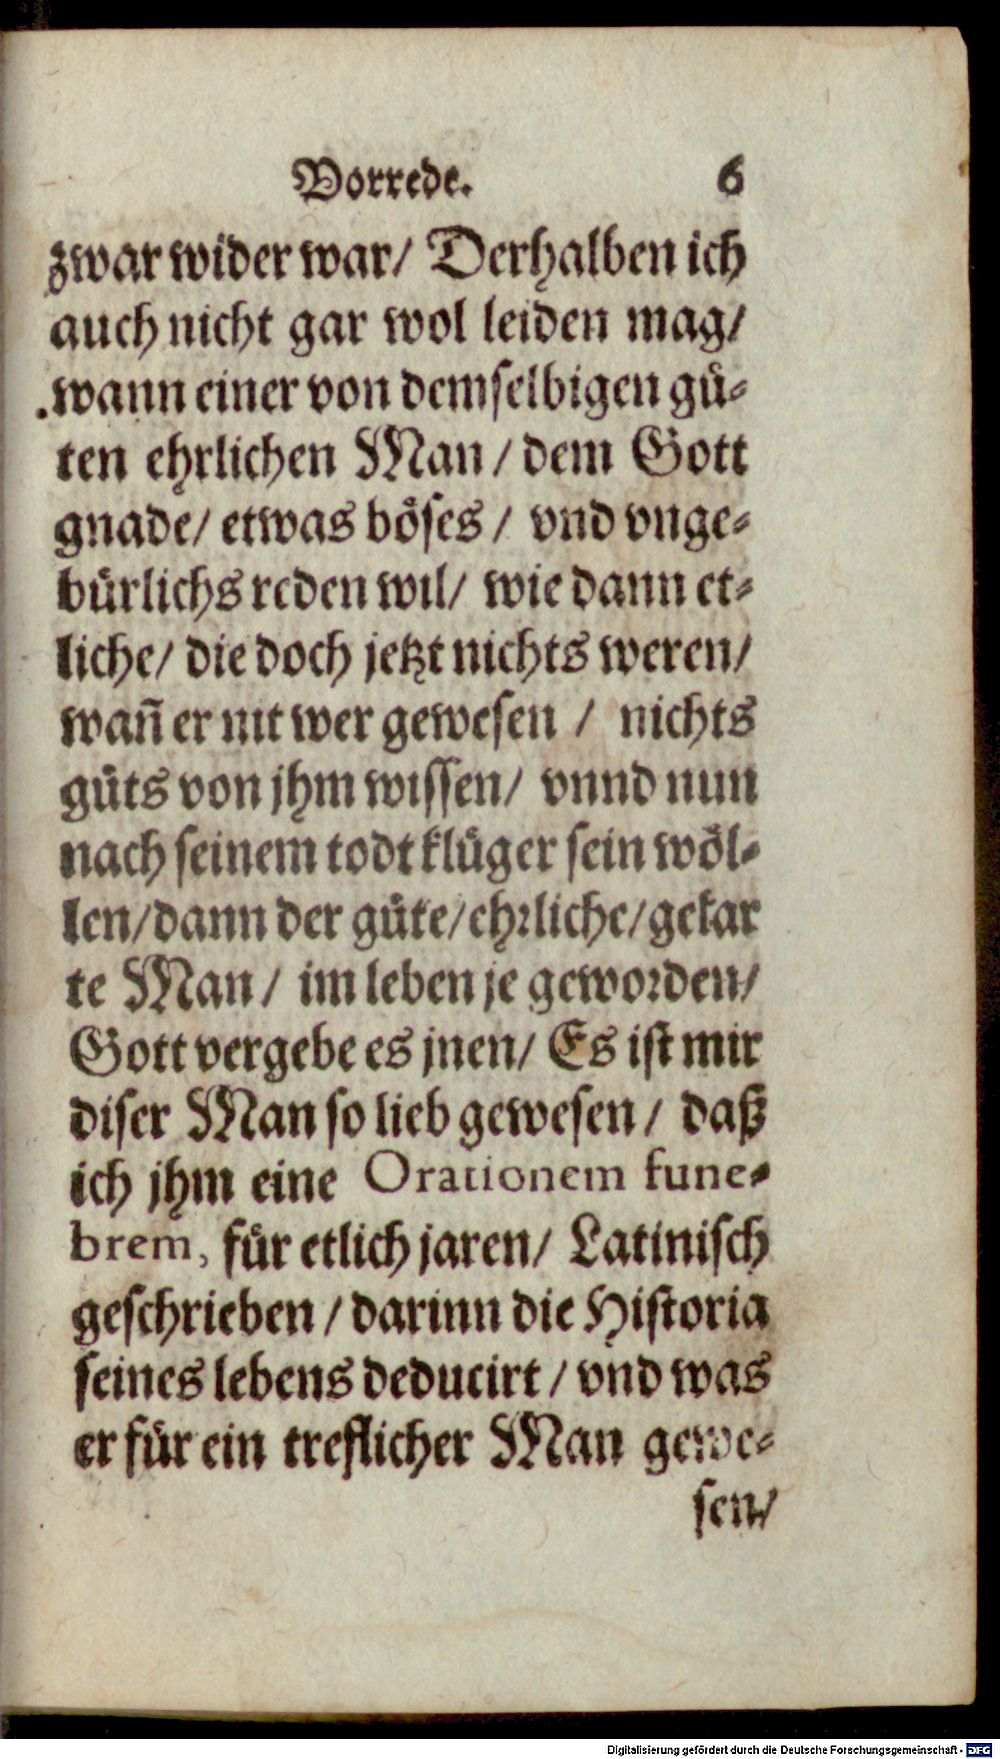 Vorrede. 6
zwar wider war/ Derhalben ich
auch nicht gar wol leiden mag/
wann einer von demselbigen gů-
ten ehrlichen Man / dem Gott
gnade/ etwas böses / vnd vnge-
bürlichs reden wil/ wie dann et-
liche/ die doch jetzt nichts weren/
wañ er nit wer gewesen / nichts
gůts von jhm wissen/ vnnd nun
nach seinem todt klüger sein wöl-
len/dann der gůte/ehrliche/gelar
te Man / im leben je geworden/
Gott vergebe es jnen/ Es ist mir
diser Man so lieb gewesen / daß
ich jhm eine Orationem fune-
brem, für etlich jaren/ Latinisch
geschrieben / darinn die Historia
seines lebens deducirt / vnd was
er für ein treflicher Man gewe-
sen/
Digitalisierung gefördert durch die Deutsche Forschungsgemeinschaft - DFG